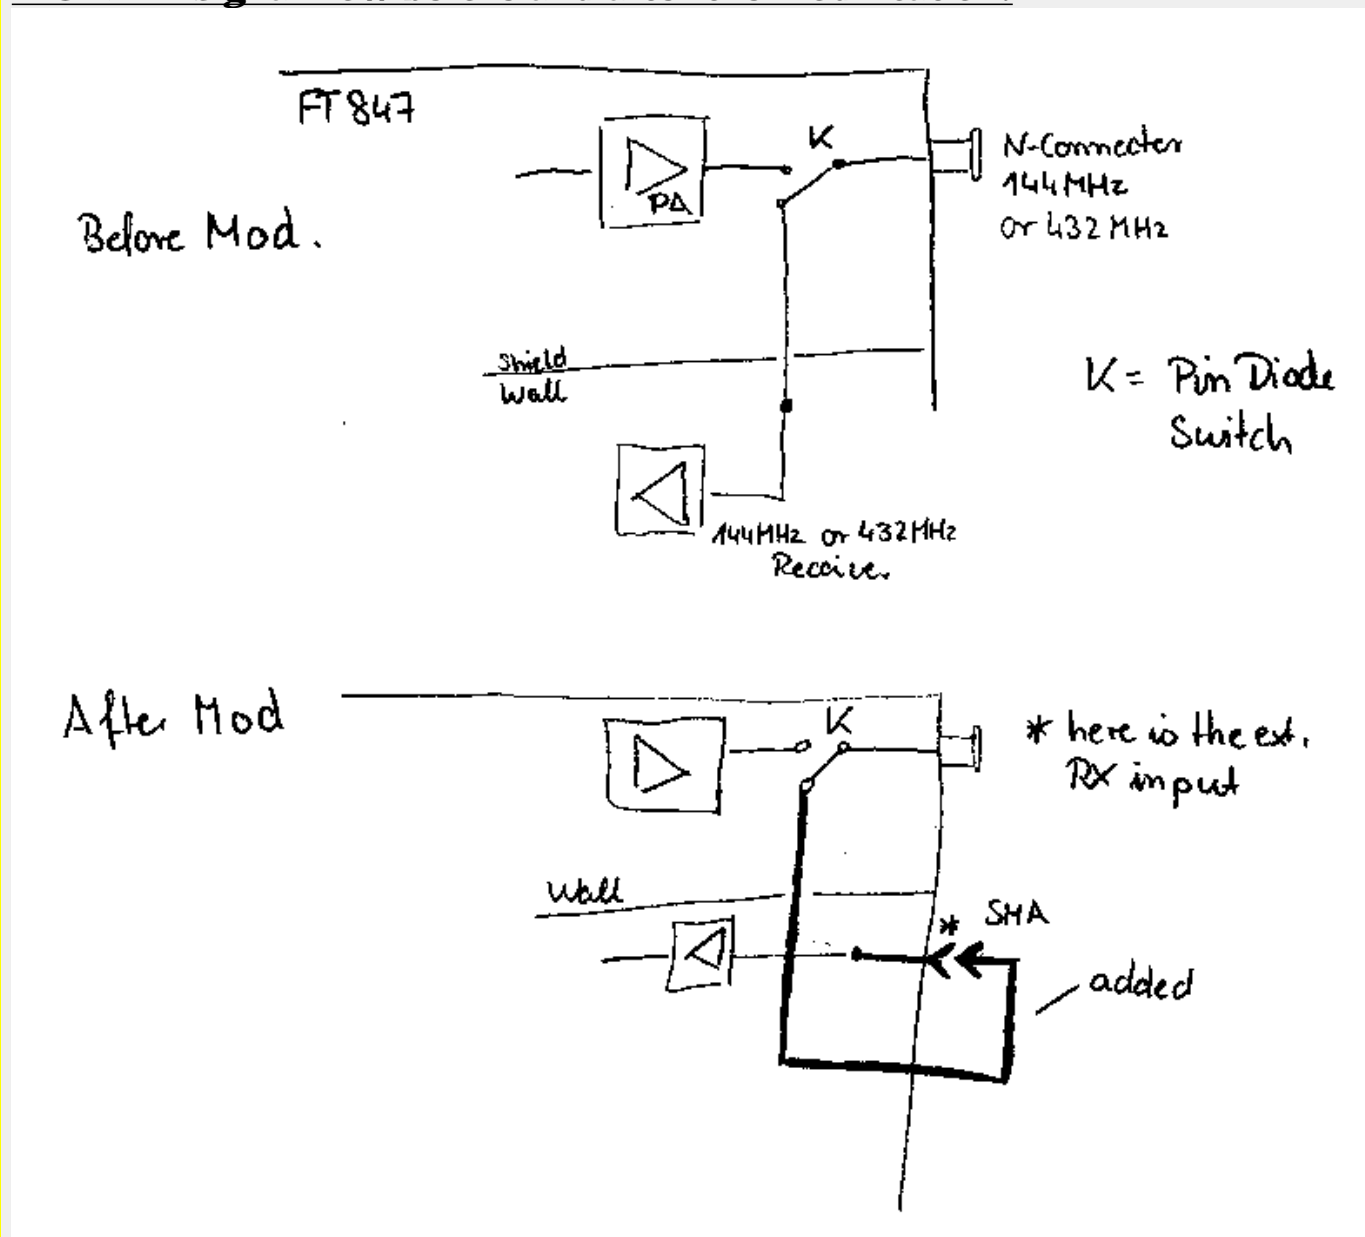 FT 847
K
N-Connecter
144MHz
or 432 MHz
PA
Before Mod.
Shield
Wall
K = Pin Diode
Switch
144MHz or 432MHz
Receiver
After Mod
K
* here is the ext.
RX input
Wall
* SMA
added